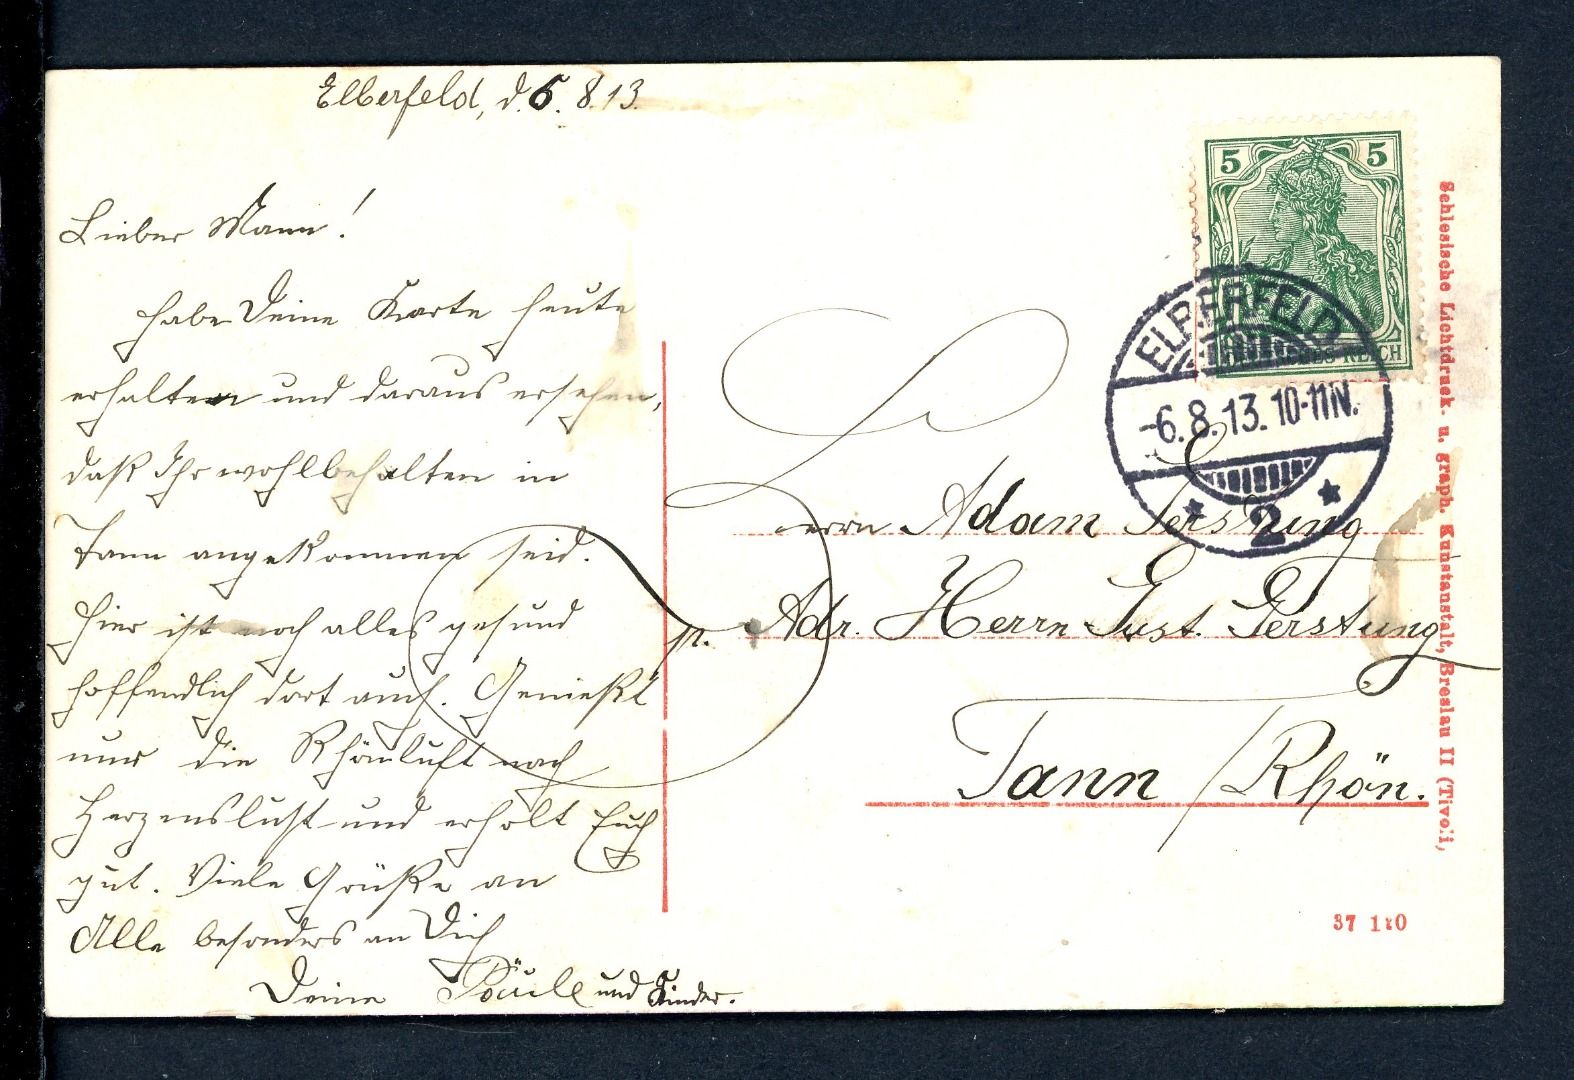 Elberfeld, d. 6. 8. 13.
Lieber Mann!
Habe Deine Karte heute
erhalten und daraus ersehen,
daß Ihr wohlbehalten in
Tann angekommen seid.
Hier ist noch alles gesund
hoffendlich dort auch. Genießt
nur die Rhönluft nach
Herzenslust und erholt Euch
gut. Viele Grüße an
Alle besonders an Dich
Deine und Kinder.
5 5
DEUTSCHES REICH
ELBERFELD
-6.8.13.10-11N.
* 2 *
Herrn Adam Gerstung
p. Adr. Herrn Gust. Gerstung
Tann / Rhön.
Schlesische Lichtdruck- u. graph. Kunstanstalt, Breslau II (Tivoli,
37 110